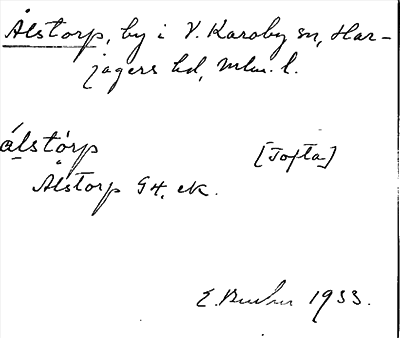 Ålstorp, by i V. Karaby sn, Har-
jagers hd, Mlm. l.
álstòrp [Tofta]
Ålstorp GH. ek.
E. 1933.